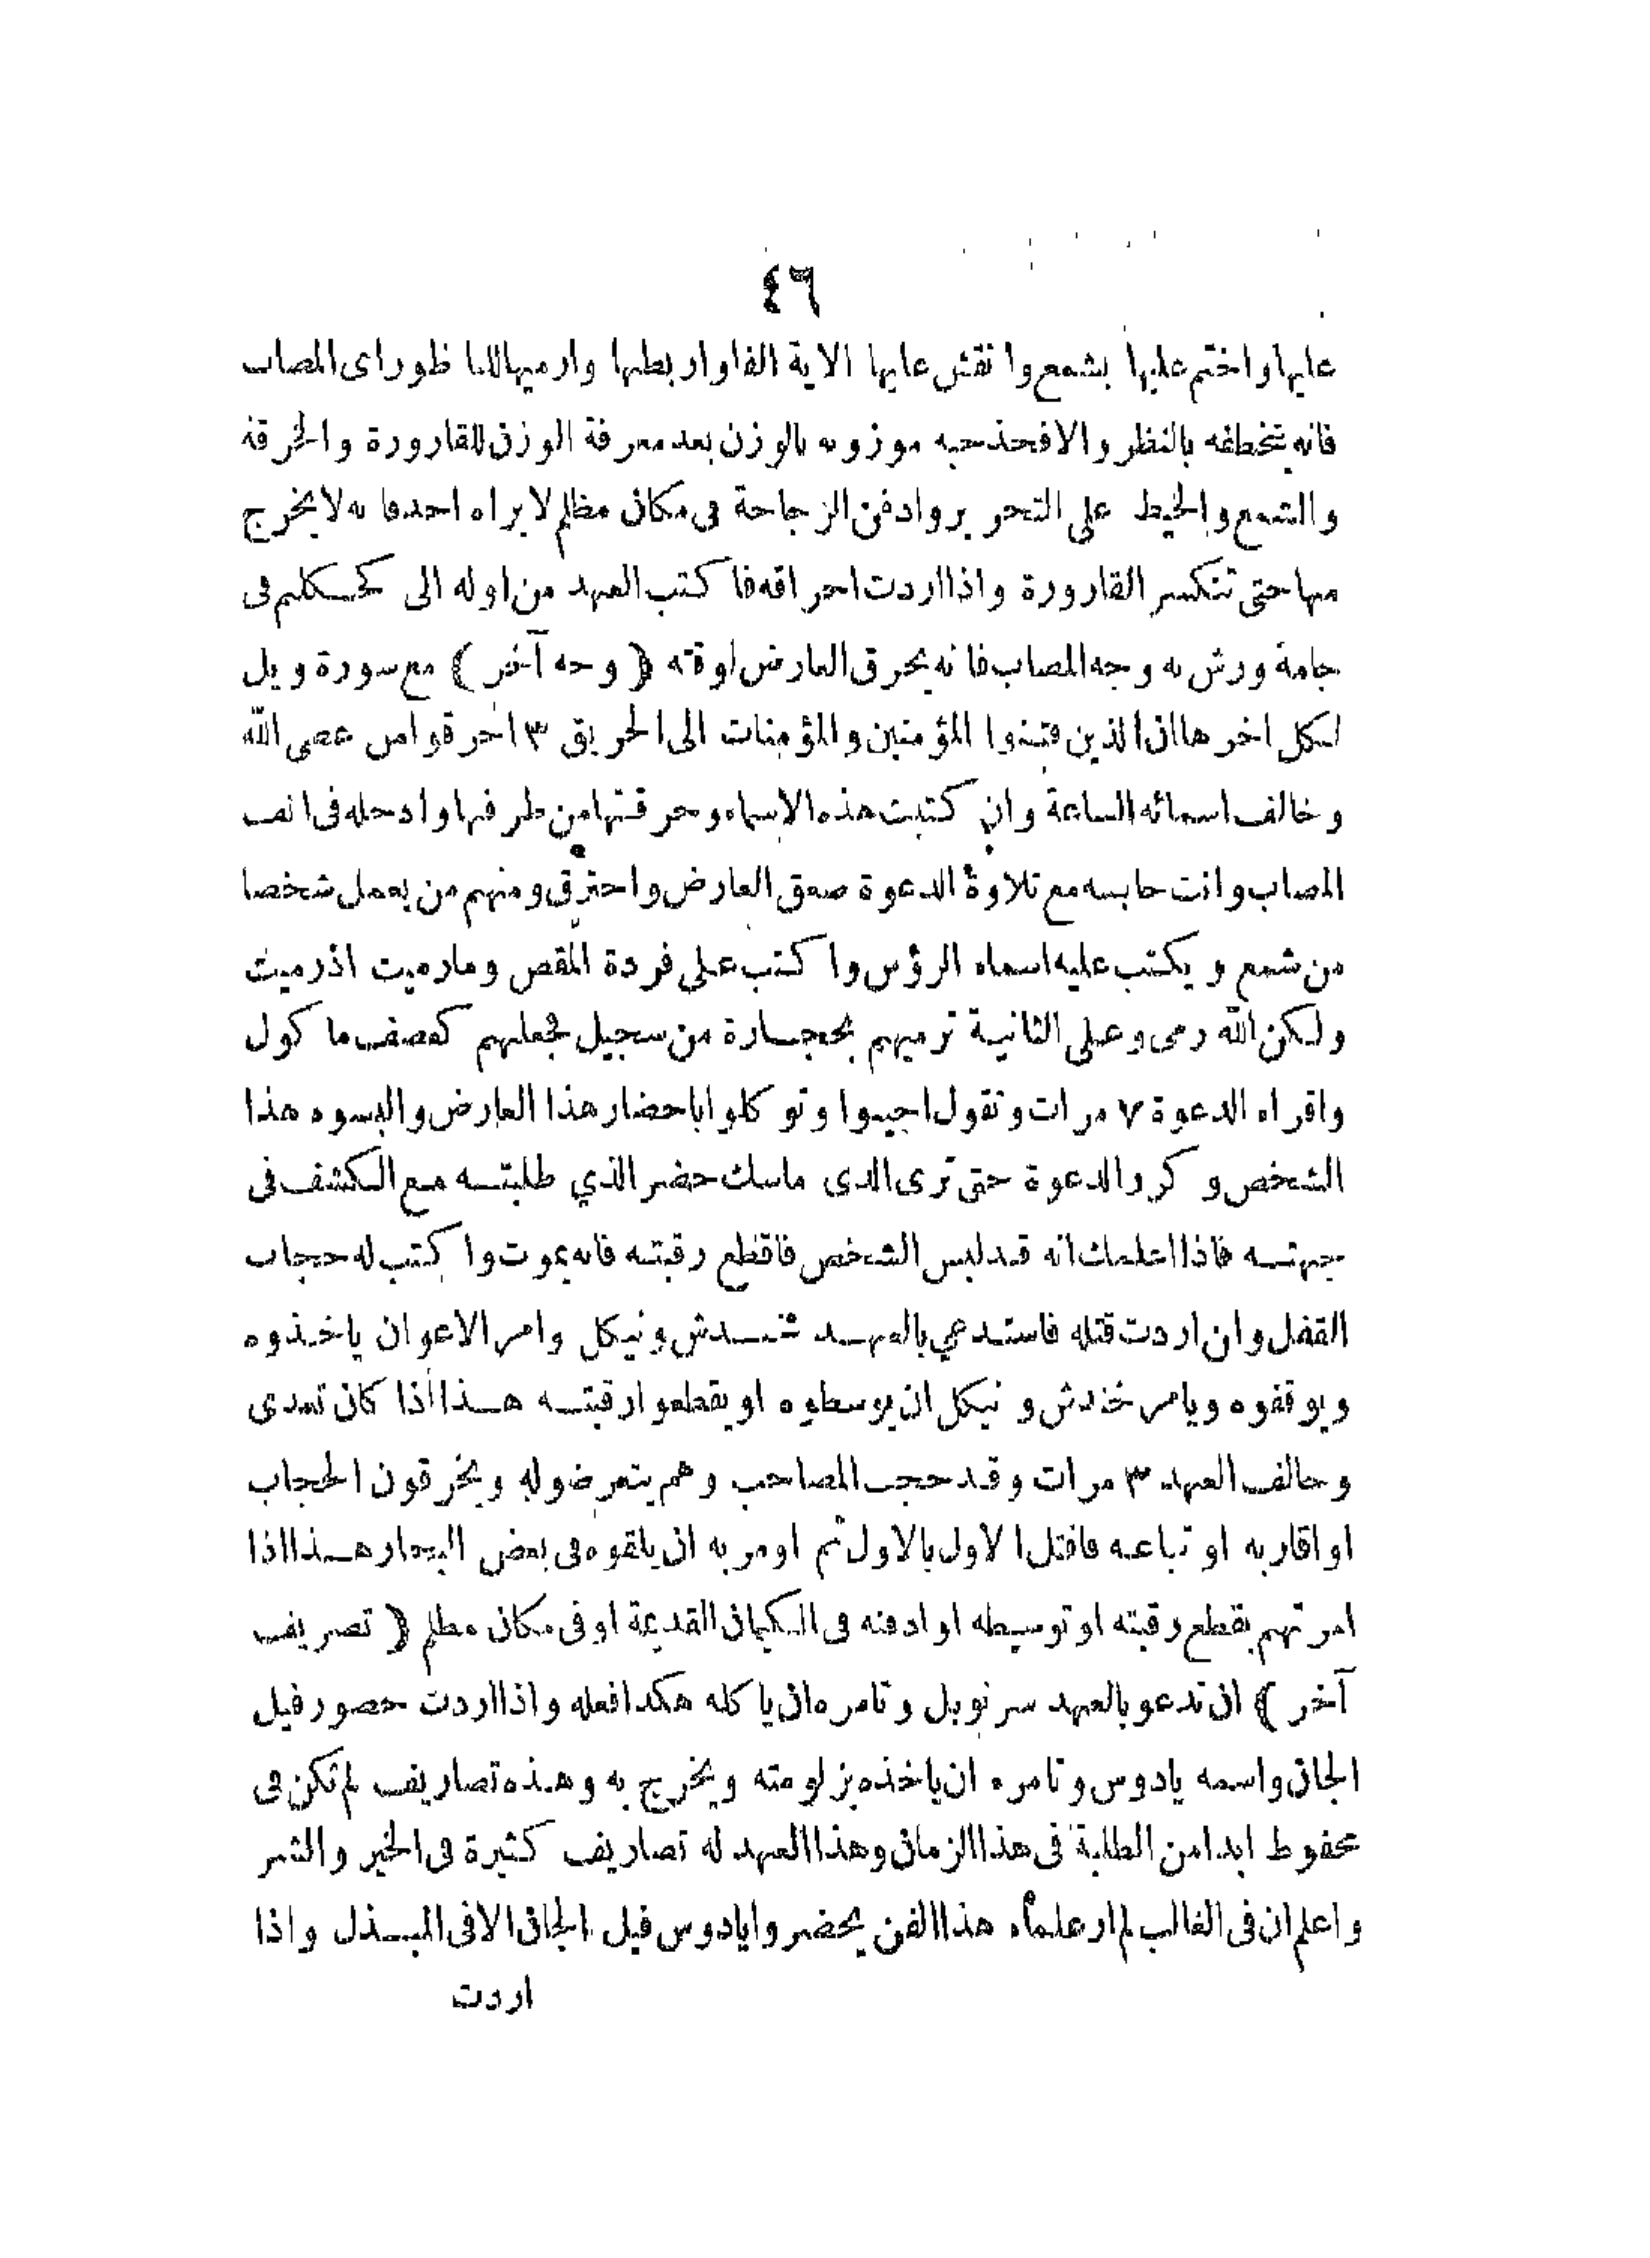 ٤٦
عليها واختم عليها بشمع وانقش عليها الاية الفا واربطها وارميها للناظور اى المصاب
فانه يتخطفه بالنظر والا فخذ حبه موزونه بالوزن بعد معرفة الوزن للقارورة والخرقة
والشمع والخيط على التحرير وادفن الزجاجة فى مكان مظلم لا يراه احد فانه لا يخرج
منها حتى تنكسر القارورة واذا اردت احراقه فاكتب العهد من اوله الى كحكلم فى
جامة ورش به وجه المصاب فانه يحرق العارض لوقته ﴿ وجه آخر ﴾ مع سورة ويل
لكل اخرها ان الذين فتنوا المؤمنين والمؤمنات الى الحريق ٣ احرقوا من عصى الله
وخالف اسمائه الساعة وان كتبت هذه الاسماء وحرقتها من طرفها وادخله فى انف
المصاب وانت حابسه مع تلاوة الدعوة صعق العارض واحترق ومنهم من يعمل شخصا
من شمع ويكتب عليه اسماء الرؤس واكتب على فردة المقص وما رميت اذ رميت
ولكن الله رمى وعلى الثانية ترميهم بحجارة من سجيل فجعلهم كعصف ماكول
واقراه الدعوة ٧ مرات وتقول اجيبوا وتوكلوا باحضار هذا العارض والبسوه هذا
الشخص وكرر الدعوة حتى ترى الذى ماسك حضر الذي طلبته مع الكشف فى
جهته فاذا اعلمك انه قد لبس الشخص فاقطع رقبته فانه يموت واكتب له حجاب
القفل وان اردت قتله فاستدعي بالعهد خندش ونيكل وامر الاعوان ياخذوه
ويوقفوه ويامر خندش ونيكل ان يوسطوه او يقطعوا رقبته هذا اذا كان تعدى
وخالف العهد ٣ مرات وقد حجب المصاحب وهم يتعرضوله ويخرقون الحجاب
او اقاربه او تباعه فاقتل الاول بالاول ثم اومر به ان يلقوه فى بعض البحار هذا اذا
امرتهم بقطع رقبته او توسيطه او ادفنه فى الكيمان القديمة او فى مكان مظلم ﴿ تصريف
آخر ﴾ ان تدعو بالعهد سرنوبل وتامره ان ياكله هكذا افعله واذا اردت حضور فيل
الجان واسمه يادوس وتامره ان ياخذه بزلومته ويخرج به وهذه تصاريف لم تكن فى
محفوظ ابدا من الطلبة فى هذا الزمان وهذا العهد له تصاريف كثيرة فى الخير والشر
واعلم ان فى الغالب لم ار علماء هذا الفن يحضروا يادوس فيل الجان الا فى المبذل واذا
اردت